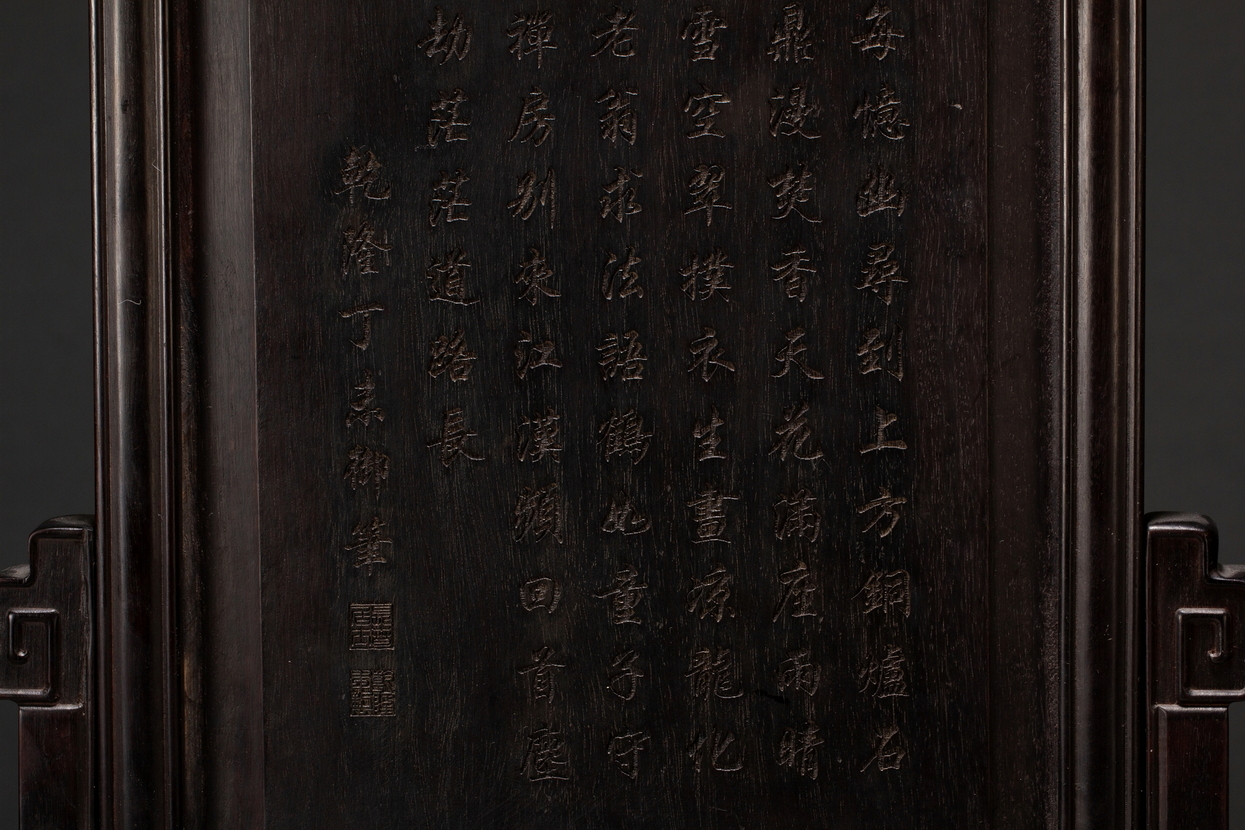 每憶幽尋到上方銅爐石
鼎漫焚香天花滿座雨晴
雪空翠撲衣生晝涼龍化
老翁求法語鶴如童子守
禪房别來江漢頻回首塵
劫茫茫道路長
乾隆丁未御筆